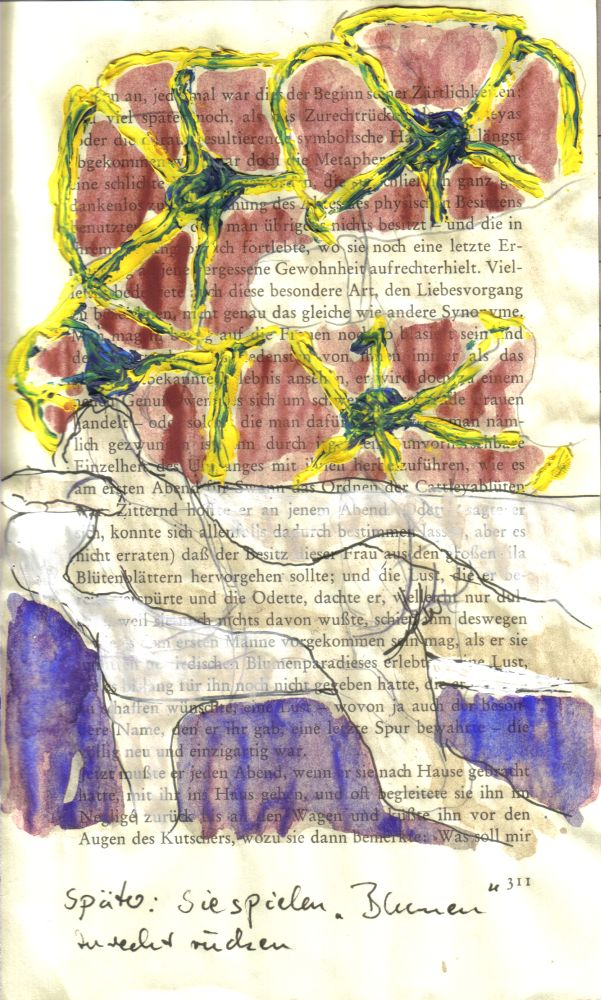 an, jedesmal war dies der Beginn seiner Zärtlichkeiten:
viel später noch, als das Zurechtrücken
oder die daraus resultierende symbolische längst
abgekommen war doch die Metapher
eine schlichte die sie schließlich ganz
dankenlos zu des Aktes des physischen Besitzens
benutzten man übrigens nichts besitzt – und die in
ihrem fortlebte, wo sie noch eine letzte Er-
an jene vergessene Gewohnheit aufrechterhielt. Viel-
leicht bedeutete auch diese besondere Art, den Liebesvorgang
zu bezeichnen, nicht genau das gleiche wie andere Synonyme.
Man mag in bezug auf die Frauen noch so blasiert sein und
von ihnen immer als das
bekannte Erlebnis ansehen, er wird doch zu einem
neuen Genuß, wenn es sich um Frauen
handelt – oder solche, die man dafür man näm-
lich gezwungen ist, ihn durch unvorhersehbare
Einzelheit des Umganges mit ihnen herbeizuführen, wie es
am ersten Abend für Swann das Ordnen der Cattleyablüten
war. Zitternd hoffte er an jenem Abend (Odette, sagte er
sich, konnte sich allenfalls dadurch bestimmen lassen, aber es
nicht erraten) daß der Besitz dieser Frau aus den großen lila
Blütenblättern hervorgehen sollte; und die Lust, die er be-
verspürte und die Odette, dachte er, vielleicht nur dul-
weil sie noch nichts davon wußte, schien ihm deswegen
dem ersten Manne vorgekommen sein mag, als er sie
irdischen Blumenparadieses erlebte eine Lust,
die es bislang für ihn noch nicht gegeben hatte, die er
zu schaffen wünschte, eine Lust – wovon ja auch der beson-
dere Name, den er ihr gab, eine letzte Spur bewahrte – die
völlig neu und einzigartig war.
Jetzt mußte er jeden Abend, wenn er sie nach Hause gebracht
hatte, mit ihr ins Haus gehen, und oft begleitete sie ihn im
Negligé zurück bis an den Wagen und küßte ihn vor den
Augen des Kutschers, wozu sie dann bemerkte: ›Was soll mir
311
Später: Sie spielen „Blumen"
zurecht rücken